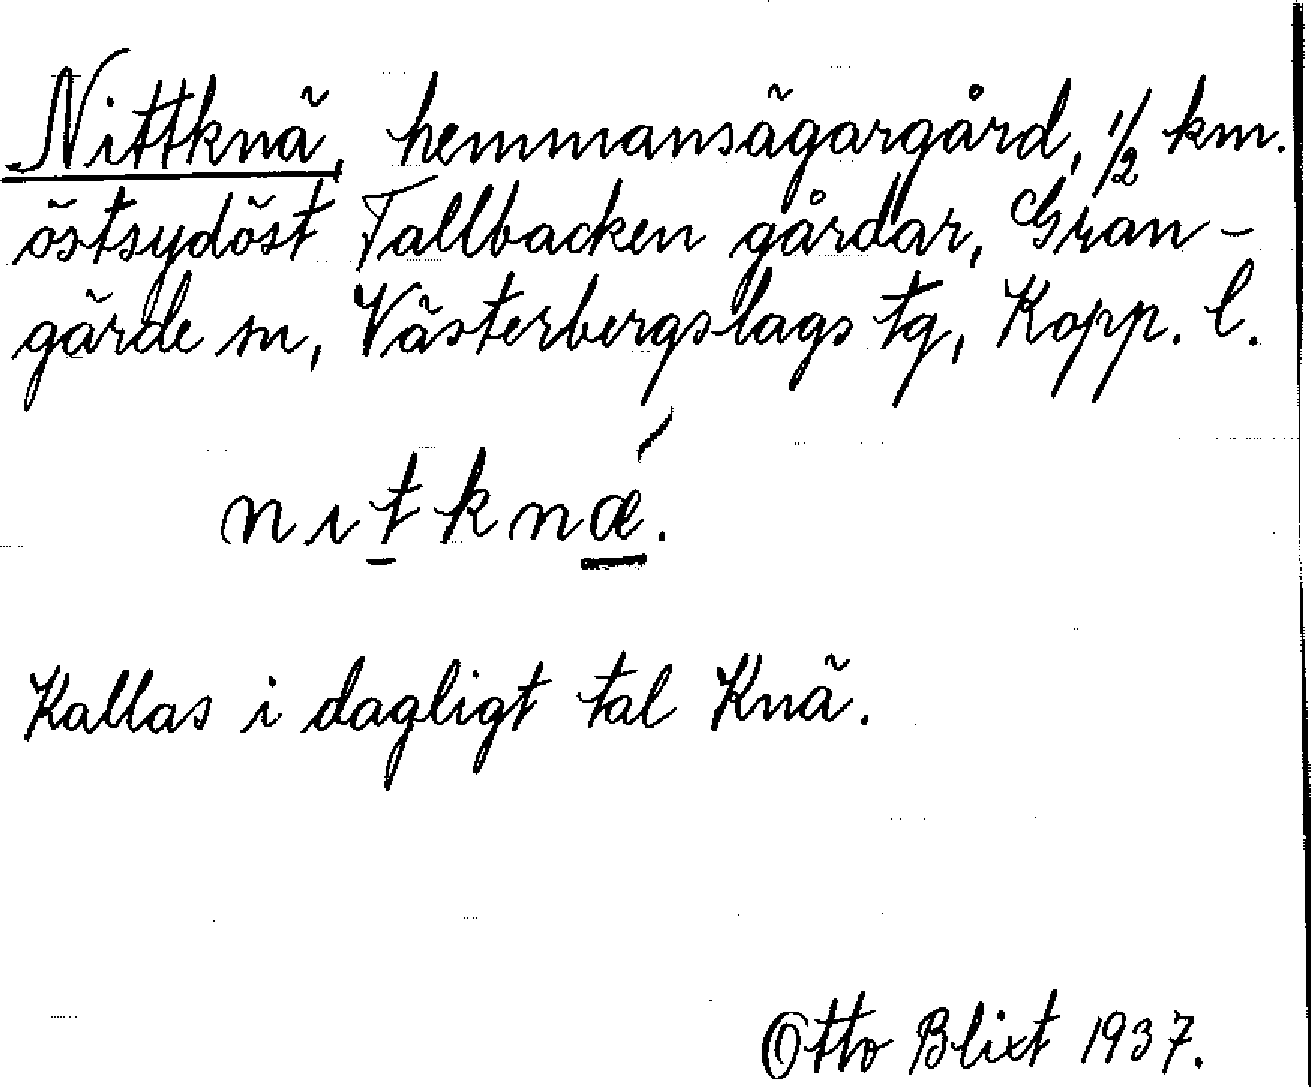 Nittknä, hemmansägargård, 1/2 km.
östsydöst Tallbacken gårdar, Gran-
gärde sn, Västerbergslags tg, Kopp. l.
nıt̲knǽ̲.
Kallas i dagligt tal Knä.
Otto Blixt 1937.